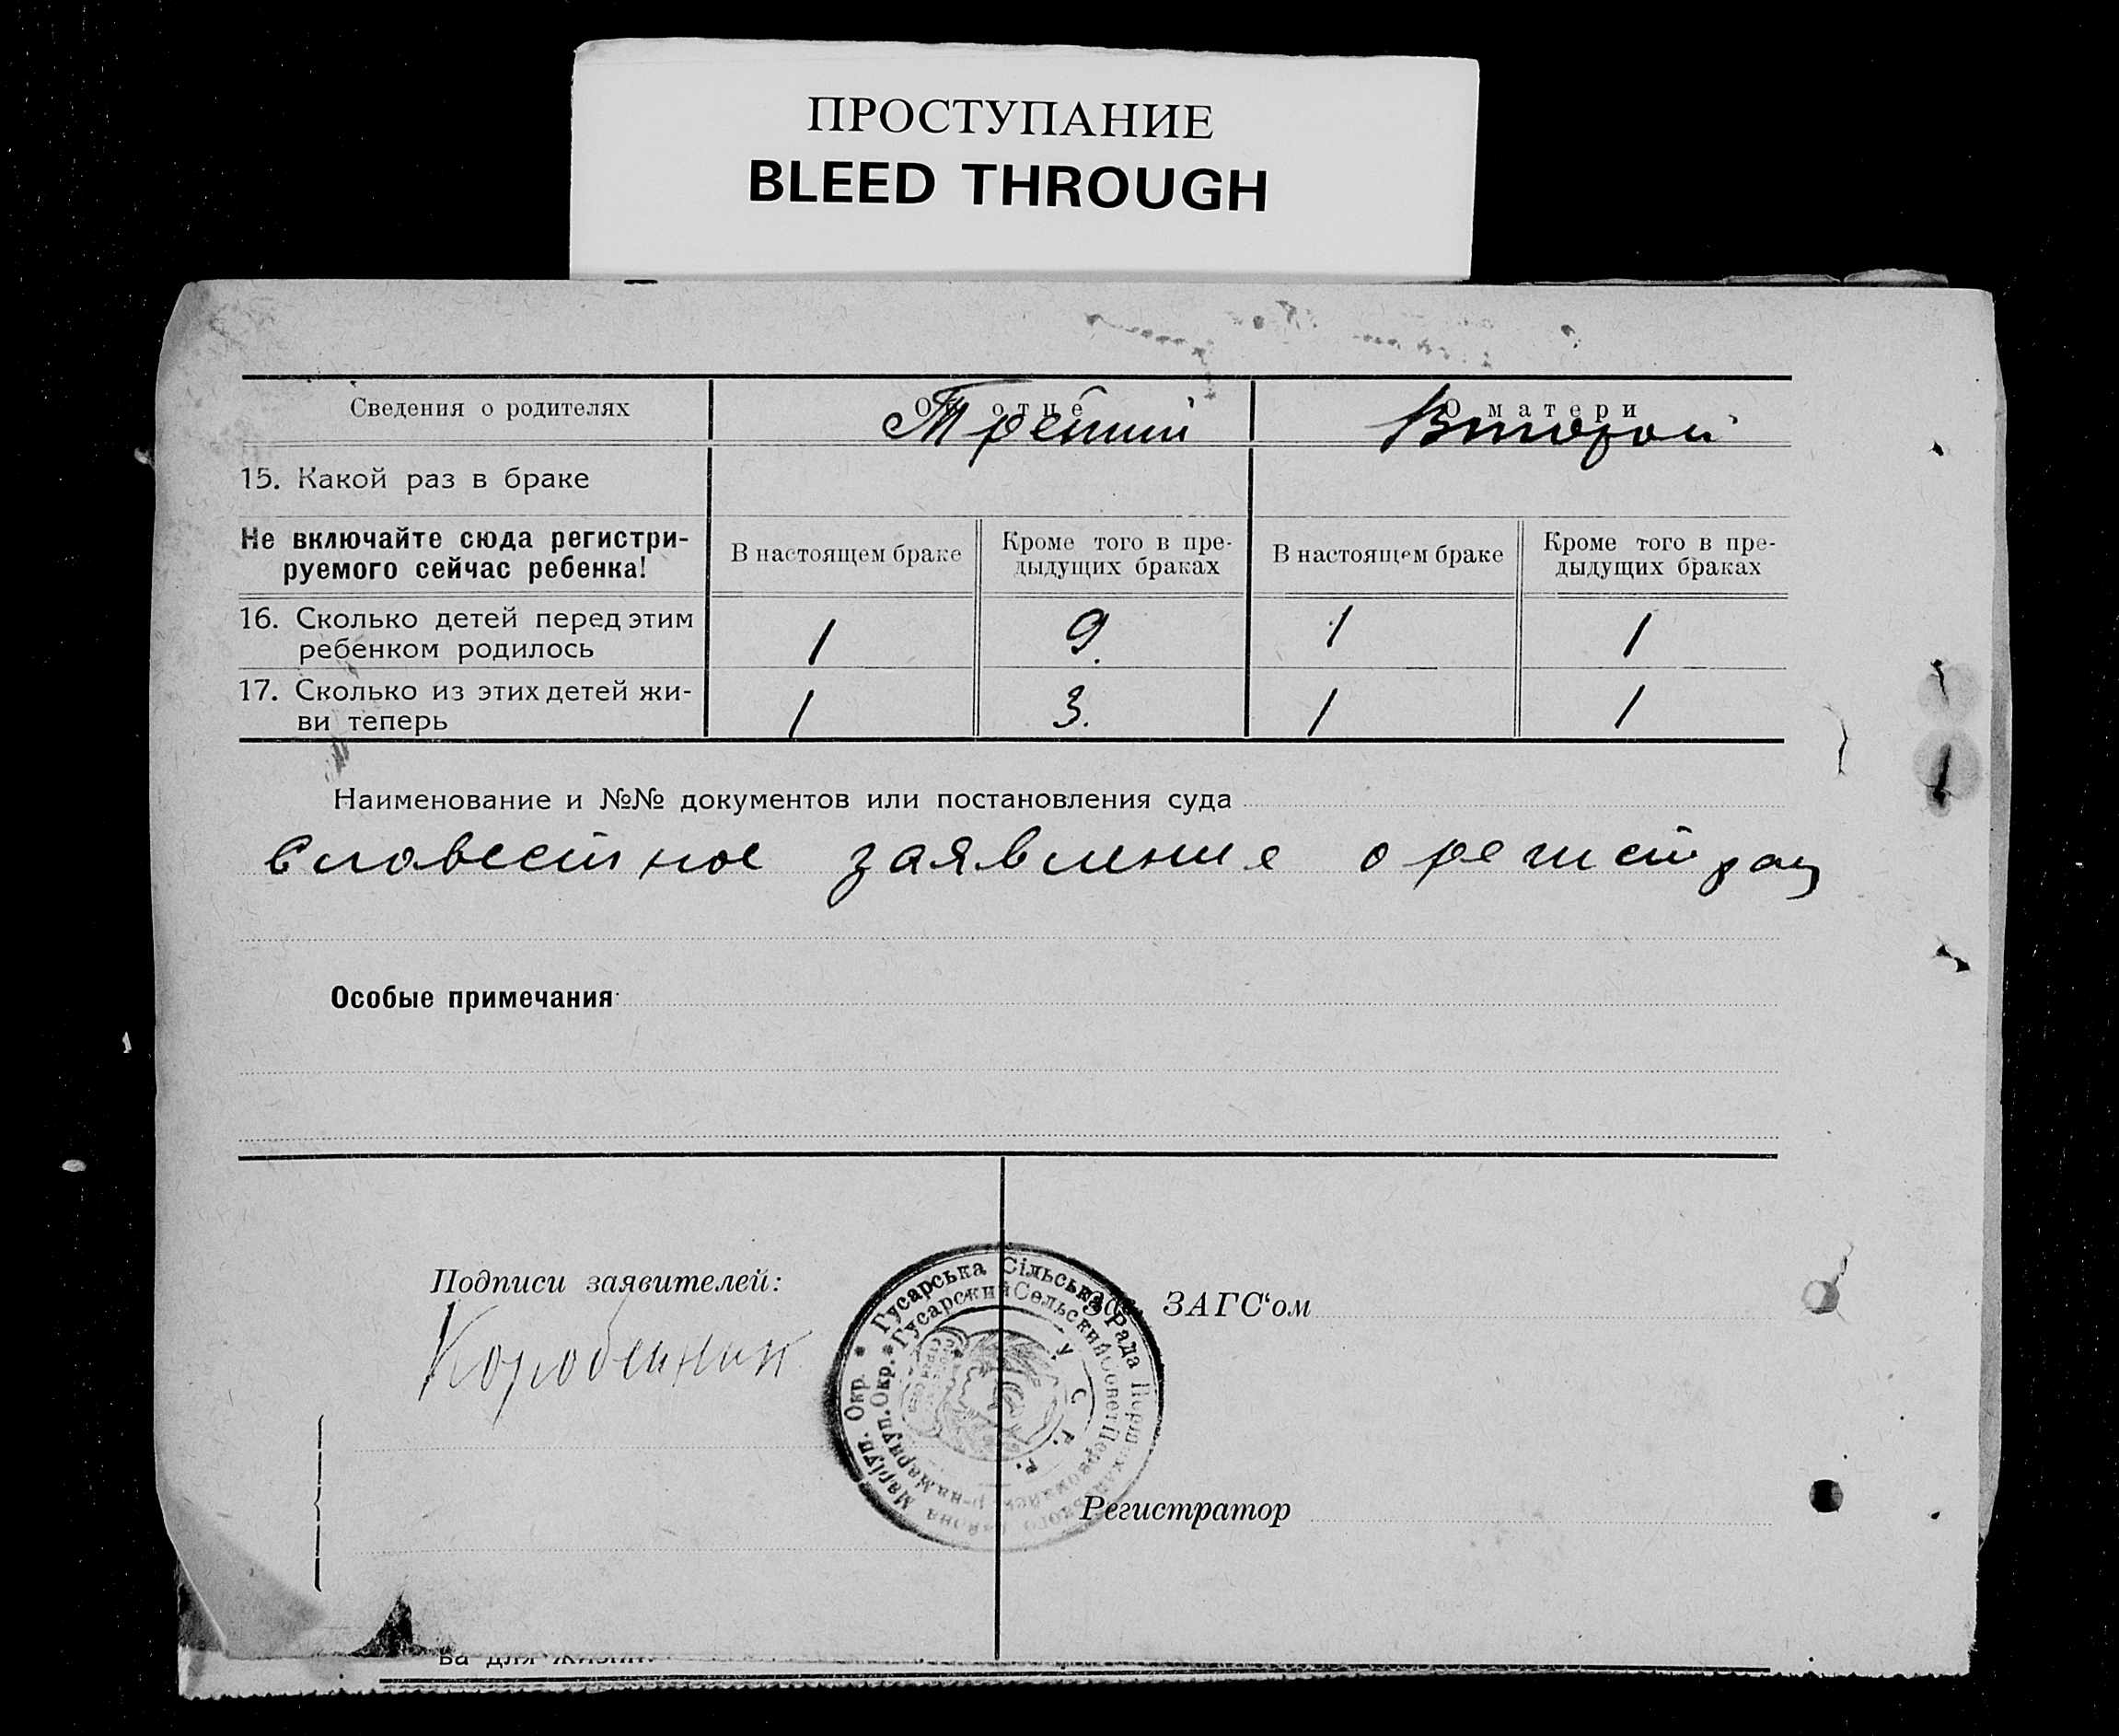 ПРОСТУПАНИЕ
BLEED THROUGH
Сведения о родителях
Об отце
О матери
Третий
Второй
15. Какой раз в браке
Не включайте сюда регистри-
руемого сейчас ребенка!
В настоящем браке
Кроме того в пре-
дыдущих браках
В настоящем браке
Кроме того в пре-
дыдущих браках
16. Сколько детей перед этим
ребенком родилось
1
9.
1
1
17. Сколько из этих детей жи-
ви теперь
1
3.
1
1
Наименование и №№ документов или постановления суда
Словестное заявление о регистрац
Особые примечания
Подписи заявителей:
Зав. ЗАГС‘ом
Гусарська Сільська Рада
Маріуп. Окр.
Гусарский Сельский Совет
Мариуп. Окр.
У. С. Р. Р.
Регистратор
ва для жизни.